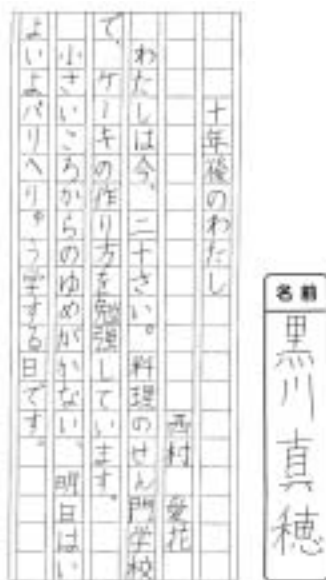 名前
黒川真穂
十年後のわたし
西村 愛花
わたしは今、二十さい。料理のせん門学校
で、ケーキの作り方を勉強しています。
小さいころからのゆめがかない、明日はい
よいよパリへりゅう学する日です。